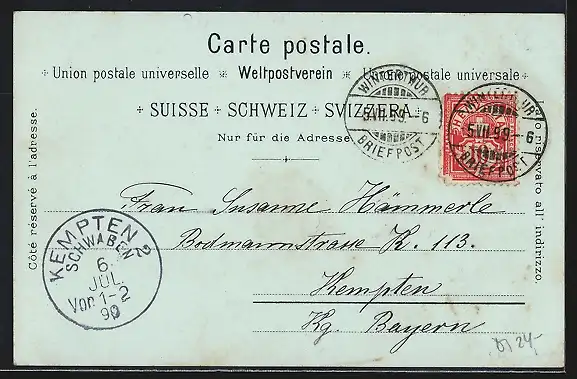 Carte postale.
Union postale universelle ✳ Weltpostverein ✳ Union postale universale
SUISSE SCHWEIZ SVIZZERA
Nur für die Adresse
Côté réservé à l'adresse.
riservato all' indirizzo.
WINTERTHUR
5 VII. 99 - 6
BRIEFPOST
WINTERTHUR
5 VII. 99 - 6
BRIEFPOST
Frau Susanne Hämmerle
Bodmannstrasse K. 113.
Kempten
Kg. Bayern
KEMPTEN 2
SCHWABEN
6.
JUL
Vor. 1-2
99
24.-